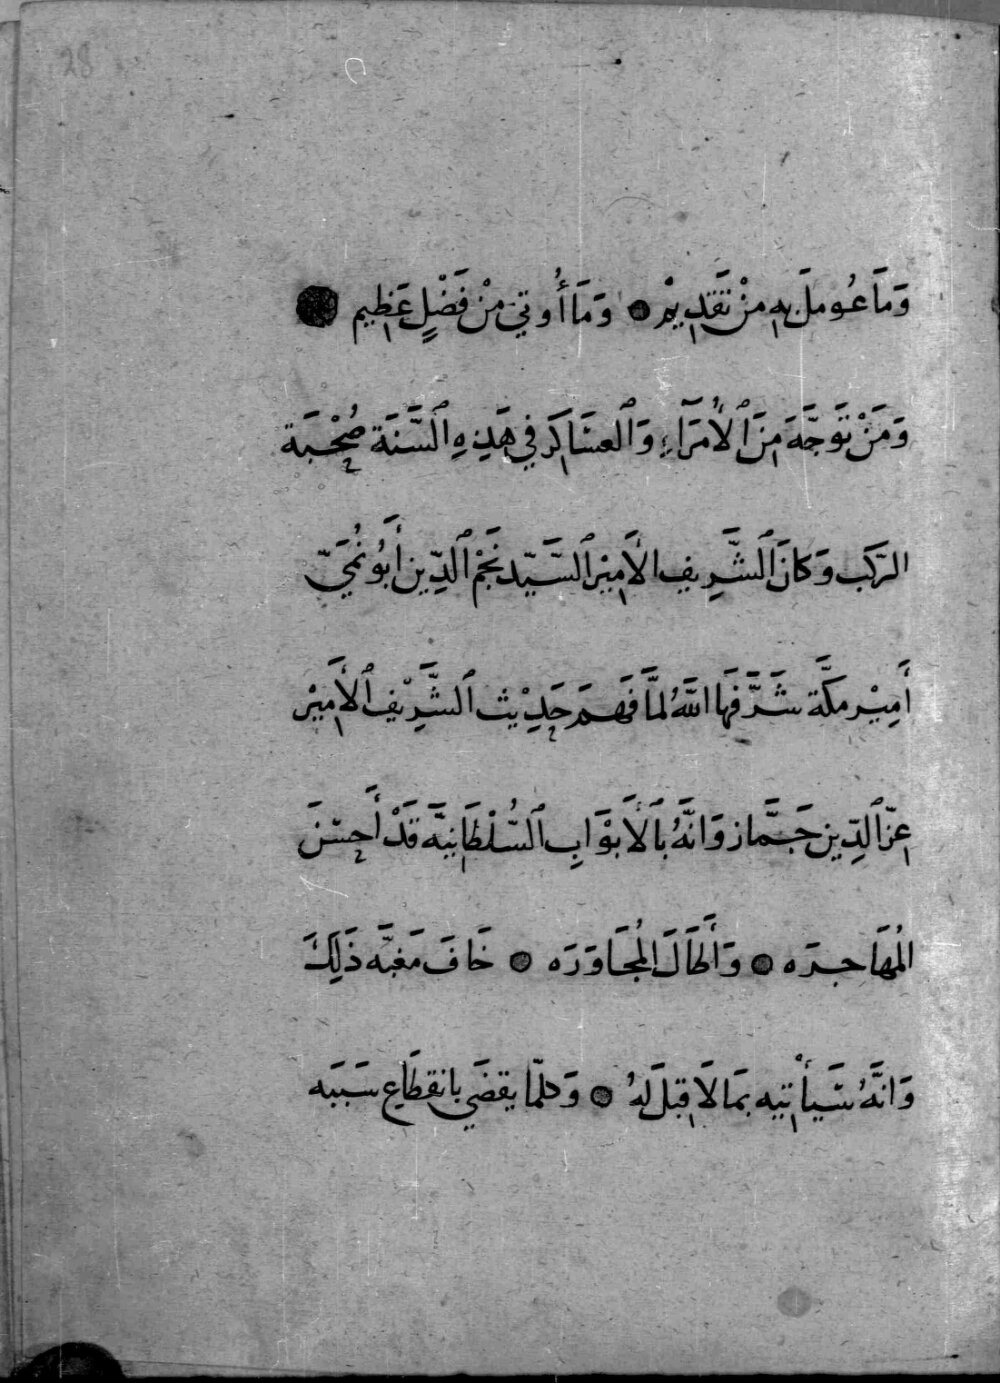 28
وَمَا عُومِلَ بِهِ مِنْ تَقَدِيمْ ● وَمَا أُوتِيَ مِنْ فَضْلٍ عَظِيم ●
وَمَنْ تَوَجَّهَ مِنَ ٱلْأُمَرَآءِ وَٱلْعسَاكَر فِي هَذِهِ ٱلسَّنَة صُحْبَة
الرَّكب وَكَانَ ٱلشَّرِيف الأَمِيْر ٱلسَّيّد نَجْم ٱلدِّين أَبُو نُمَيّ
أَمِيْر مكَّة شَرَّفَهَا اللَّهُ لمَّا فَهمَ حَدِيْث ٱلشَّرِيْف ٱلأَمِيْر
عِزّ ٱلدِّين جَمَّاز وَانَّهُ بِٱلأَبْوَابِ ٱلسُّلْطَانِيَّة قَدْ أَحسَنَ
المُهَاجرَه ● وَأَطَالَ المُجَاوَرَه ● خَافَ مَغبَّه ذَلِكَ
وَانَّهُ سَيَأْتيِه بمَا لَا قِبلَ لَهُ ● وَكلّمَا يقضَي بانقطَاعِ سَبَبَه